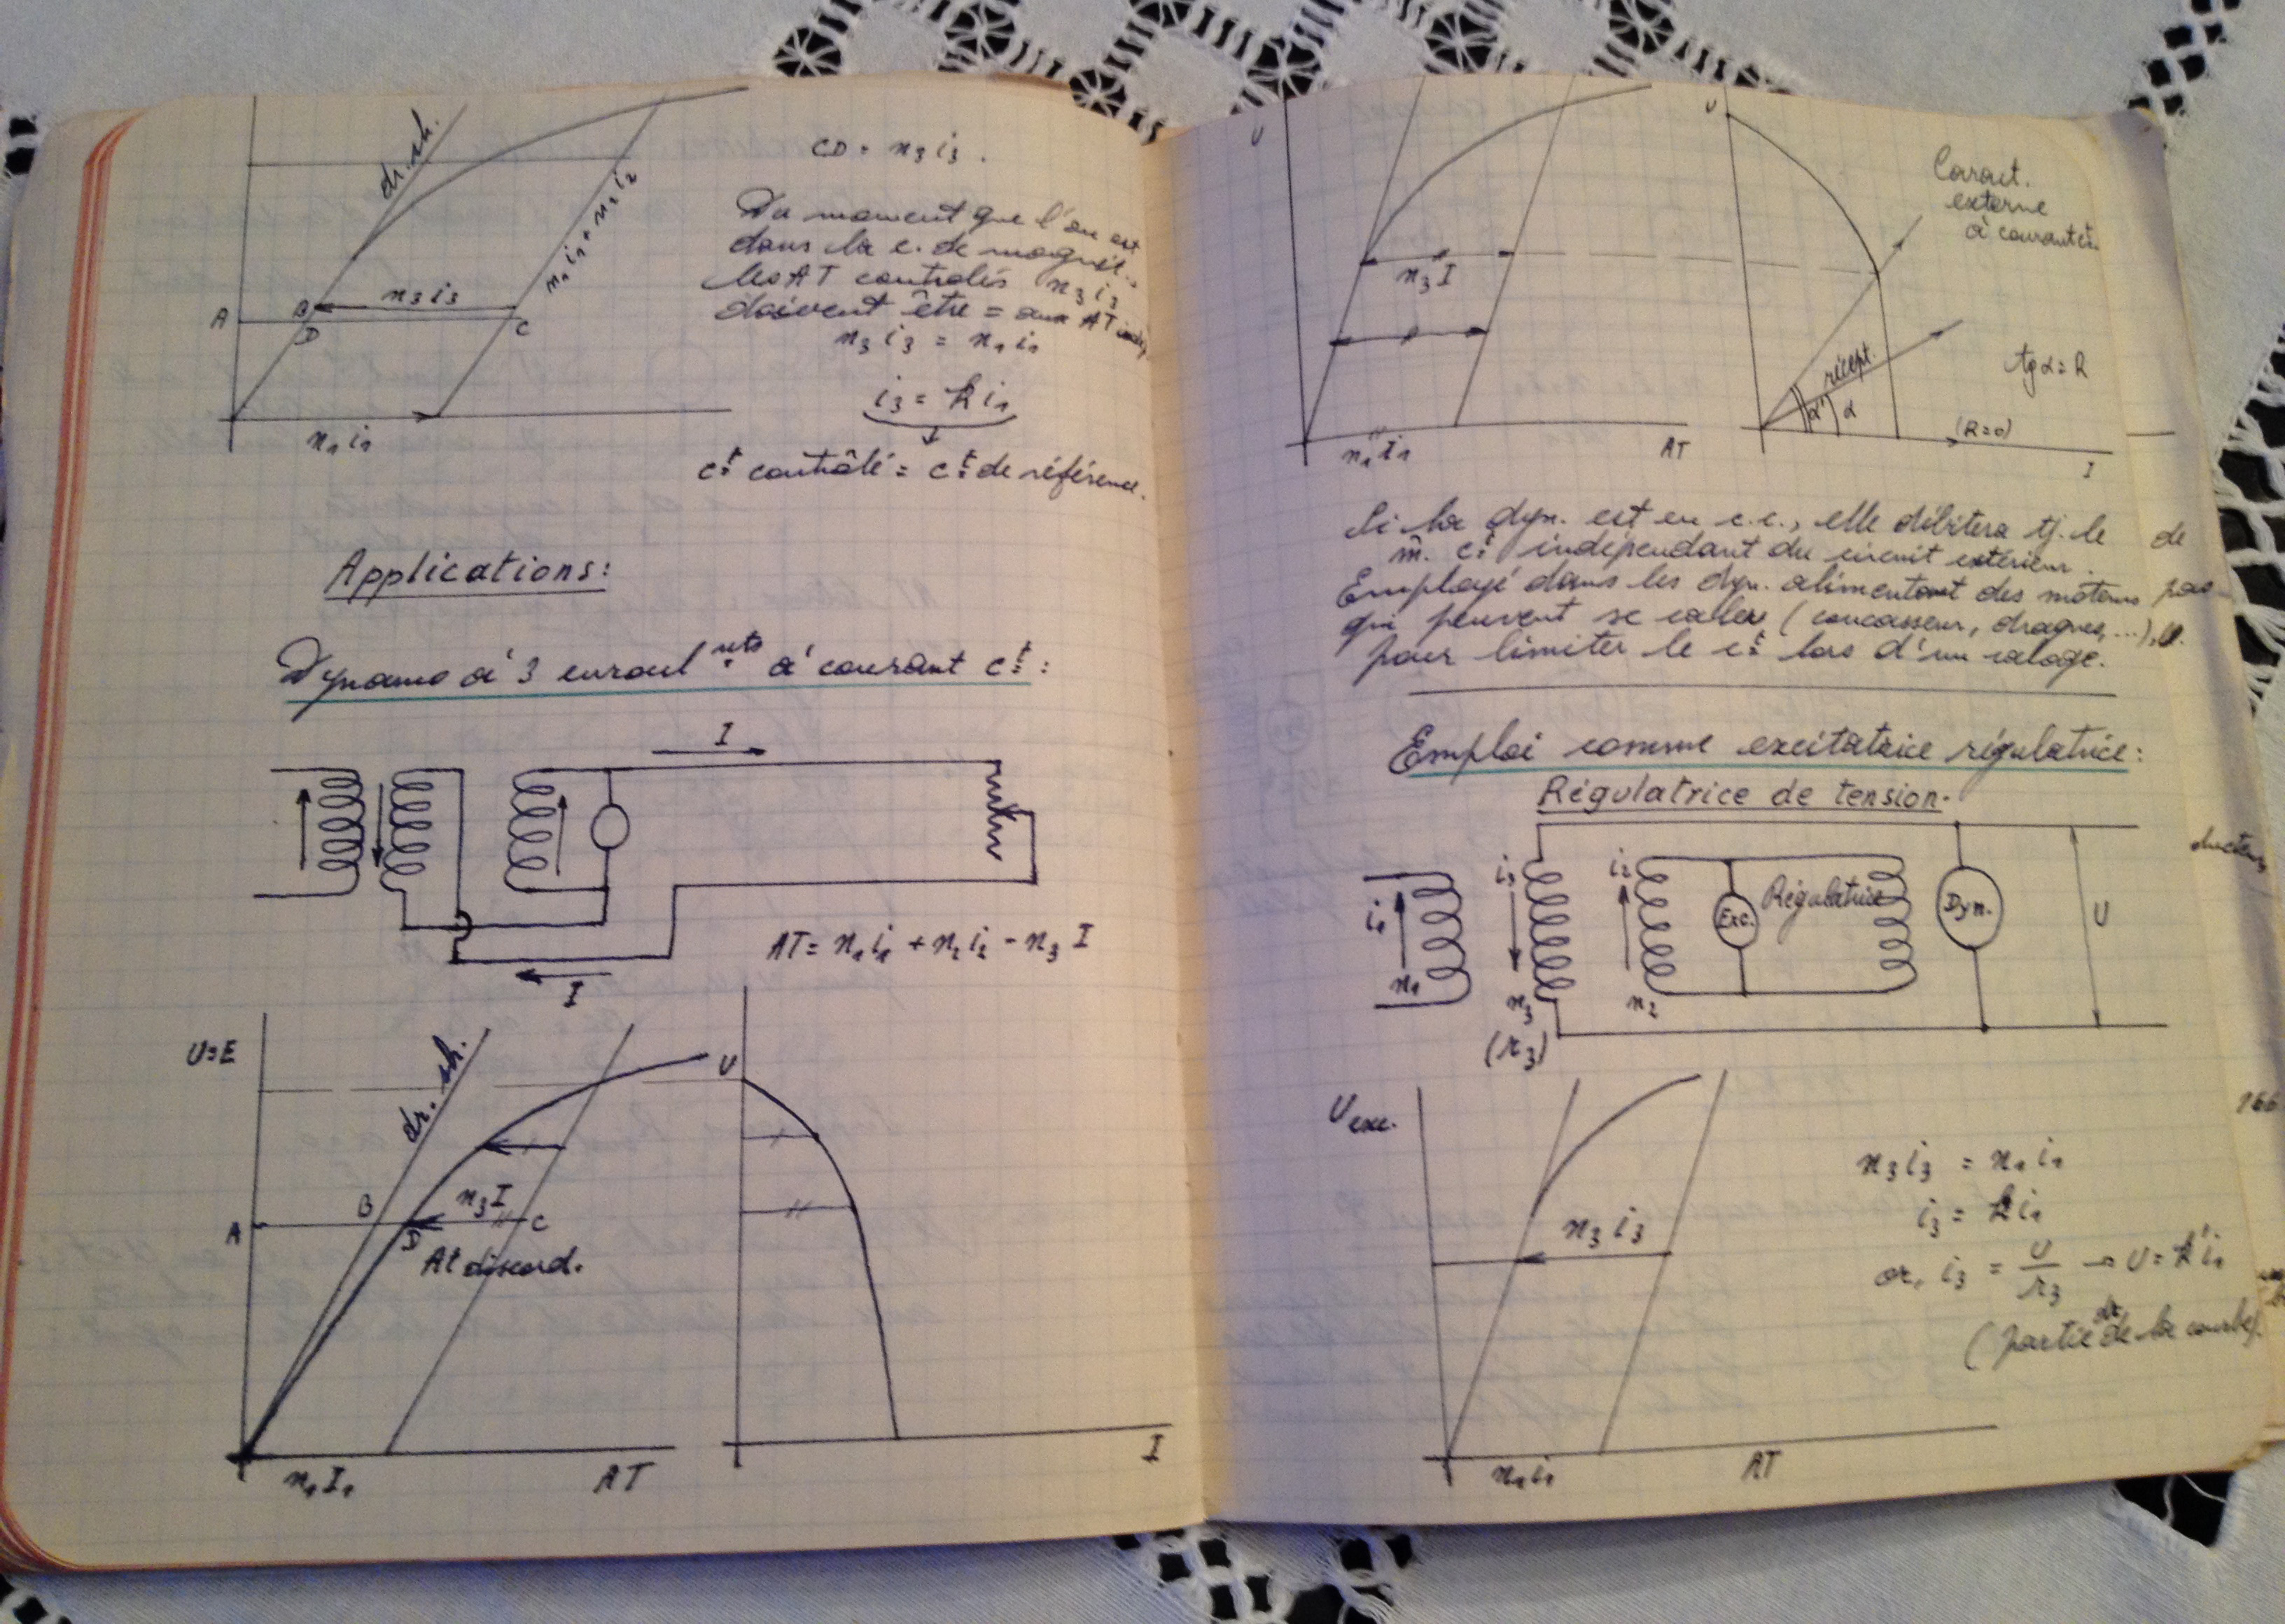 dr. sh.
n₁i₁ + n₂i₂
n₃i₃
A
B
D
C
n₁i₁
CD = n₃i₃.
Du moment que l'on est
dans la c. de magnét.
les AT contrôlés n₃i₃
doivent être = aux AT
n₃i₃ = n₁i₁
i₃ = k i₁
cᵗ contrôlé = cᵗ de référence.
Applications:
Dynamo à 3 enroulᵐᵗˢ à courant cᵗ:
I
I
AT = n₁i₁ + n₂i₂ - n₃I
U=E
dr. sh.
A
B
D
n₃I
C
At discord.
n₁I₁
AT
U
I
U
n₃I
n₁I₁
AT
U
Caract.
externe
à courant cᵗ.
récept.
α'
α
tg α = R
(R=0)
I
Si la dyn. est en c.c., elle débitera tj. le
m̂. cᵗ indépendant du circuit extérieur.
Employé dans les dyn. alimentant des moteurs
qui peuvent se caler (concasseur, dragues,...),
pour limiter le cᵗ lors d'un calage.
de
pas
Emploi comme excitatrice régulatrice:
Régulatrice de tension.
i₁
n₁
i₃
n₃
(r₃)
i₂
n₂
Exc.
Régulatrice
Dyn.
U
U exc.
n₃i₃
n₁i₁
AT
n₃i₃ = n₁i₁
i₃ = k i₁
or, i₃ = U/r₃ → U = k'i₁
(partie dr. de la courbe).
166